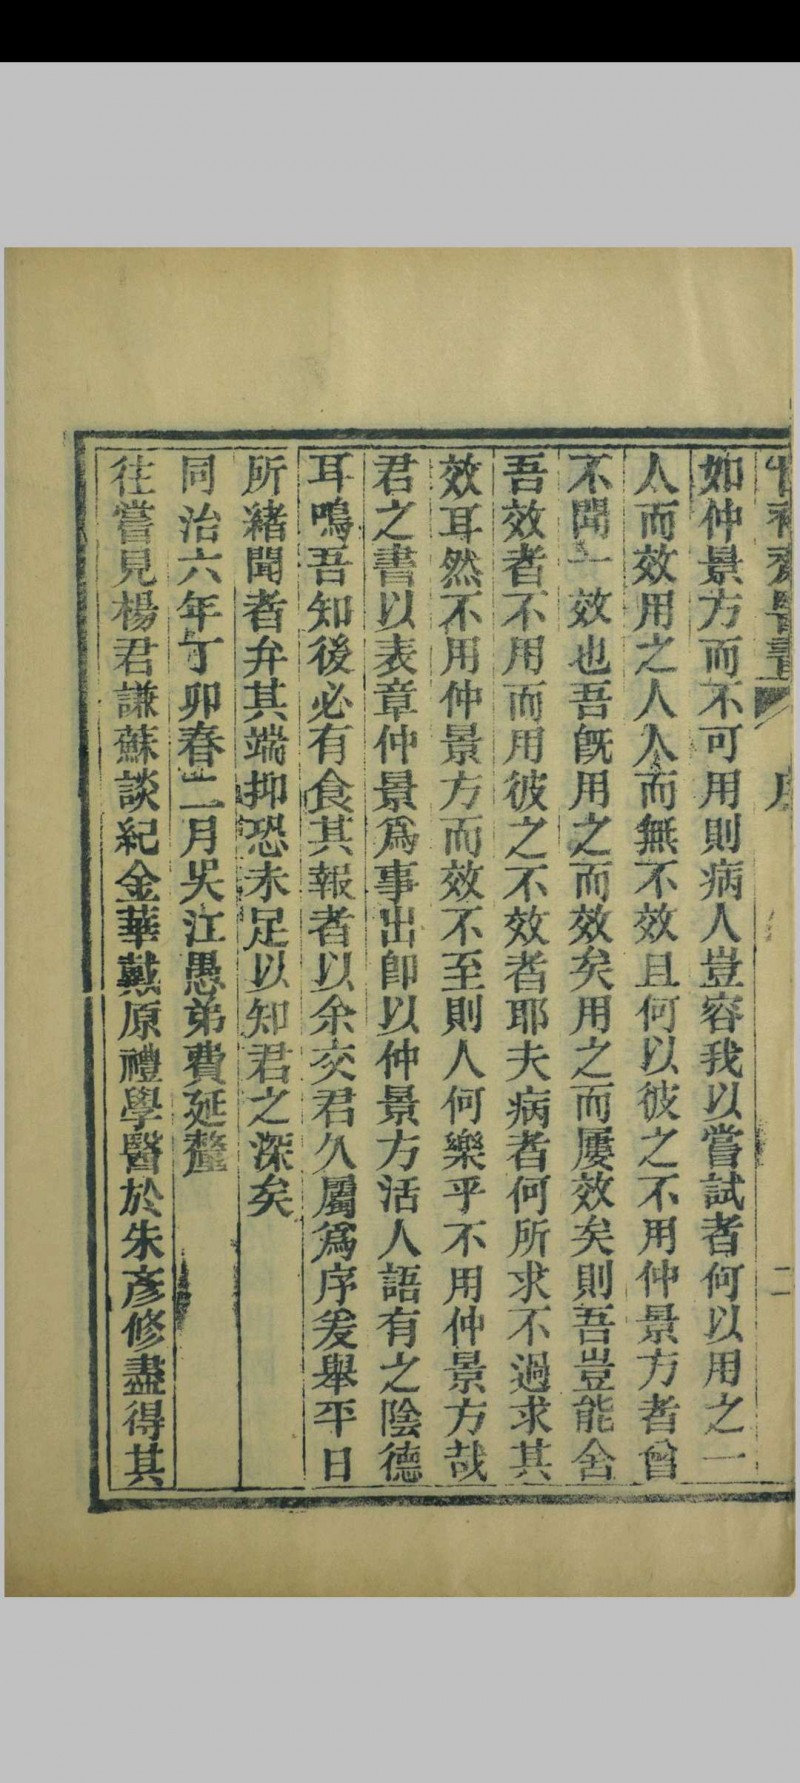 如仲景方而不可用則病人豈容我以嘗試者何以用之一
人而效用之人人而無不效且何以彼之不用仲景方者曾
不聞一效也吾旣用之而效矣用之而屢效矣則吾豈能舍
吾效者不用而用彼之不效者耶夫病者何所求不過求其
效耳然不用仲景方而效不至則人何樂乎不用仲景方哉
君之書以表章仲景爲事出卽以仲景方活人語有之陰德
耳鳴吾知後必有食其報者以余交君久屬爲序爰舉平日
所緒聞者弁其端抑恐未足以知君之深矣
同治六年丁卯春二月吳江愚弟費延釐
往嘗見楊君謙蘇談紀金華戴原禮學醫於朱彥修盡得其